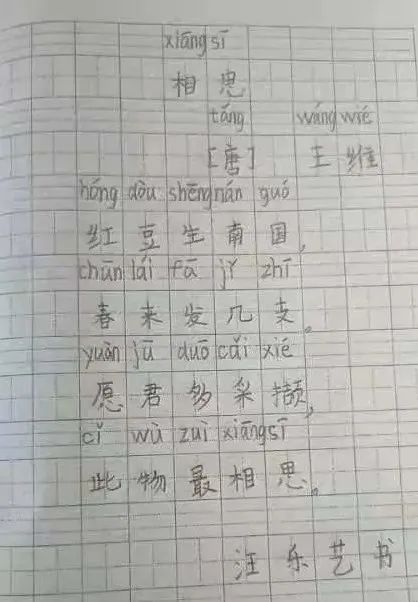 xiāng sī
相思
táng wáng wié
[唐] 王维
hóng dòu shēng nán guó
红豆生南国,
chūn lái fā jǐ zhī
春来发几支。
yuàn jū duō cǎi xié
愿君多采撷,
cǐ wù zuì xiāng sī
此物最相思。
汪乐艺书